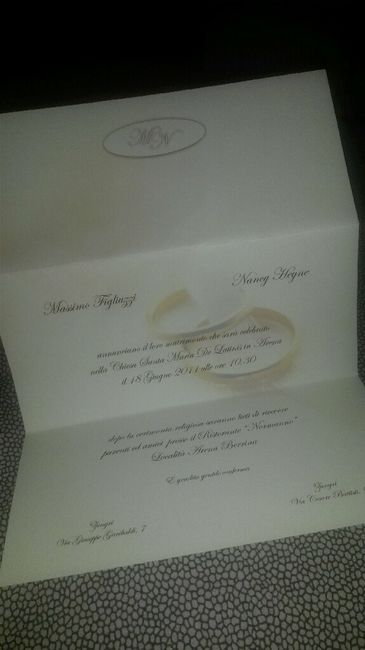 MN
Massimo Figliuzzi
Nancy Heyne
annunciano il loro matrimonio che sarà celebrato
nella Chiesa Santa Maria De Latinis in Arena
il 18 Giugno 2011 alle ore 10,30
dopo la cerimonia religiosa saranno lieti di ricevere
parenti ed amici presso il Ristorante "Normanno"
Località Arena Berrina
E' gradita gentile conferma
Via Giuseppe Garibaldi, 7
Via Cesare Battisti,